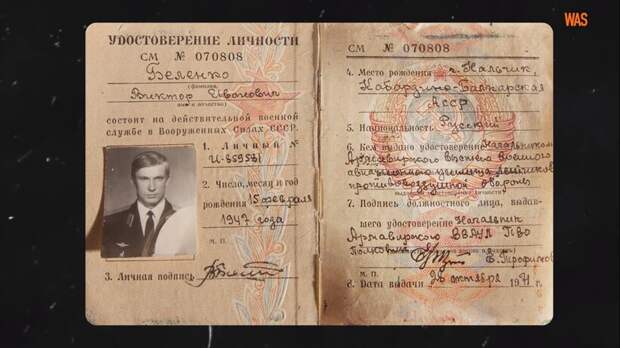 WAS
УДОСТОВЕРЕНИЕ ЛИЧНОСТИ
СМ № 070808
Беленко
(фамилия,
Виктор Иванович
имя и отчество)
состоит на действительной военной
службе в Вооруженных Силах СССР.
1. Личный №
2. Число, месяц и год
рождения 15 февраля
1947 года
м. п.
3. Личная подпись
СМ № 070808
4. Место рождения г. Нальчик,
Кабардино-Балкарская
АССР
5. Национальность Русский
6. Кем выдано удостоверение Начальником
Армавирского высшего военного
авиационного училища летчиков
противовоздушной обороны
7. Подпись должностного лица, выдав-
шего удостоверение Начальник
Армавирского ВВАУЛ ПВО
Полковник
м. п.
8. Дата выдачи 26 октября 1971 г.